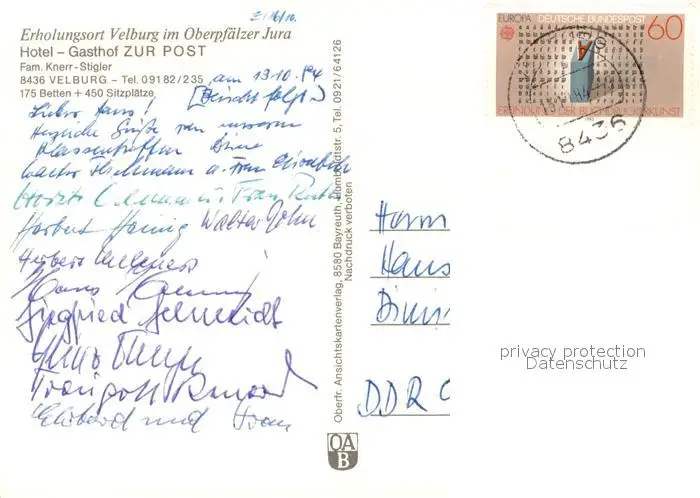 Erholungsort Velburg im Oberpfälzer Jura
Hotel – Gasthof ZUR POST
Fam. Knerr-Stigler
8436 VELBURG – Tel. 09182/235
175 Betten + 450 Sitzplätze
am 13.10.84
[Bericht folgt.]
Lieber Hans!
Herzliche Grüße von unserem
Klassentreffen Deine
u. Frau Elisabeth
Horst u. Frau Ruth
Herbert Hennig Walter John
Herbert
Hans
Siegfried Schmidt
Ehrhard und Frau
Oberfr. Ansichtskartenverlag, 8580 Bayreuth, Humboldtstr. 5, Tel. 0921/64126
Nachdruck verboten
OA
B
EUROPA DEUTSCHE BUNDESPOST 60
ERFINDUNG DER BUCHDRUCKERKUNST
8436
Herrn
Hans
DDR
privacy protection
Datenschutz